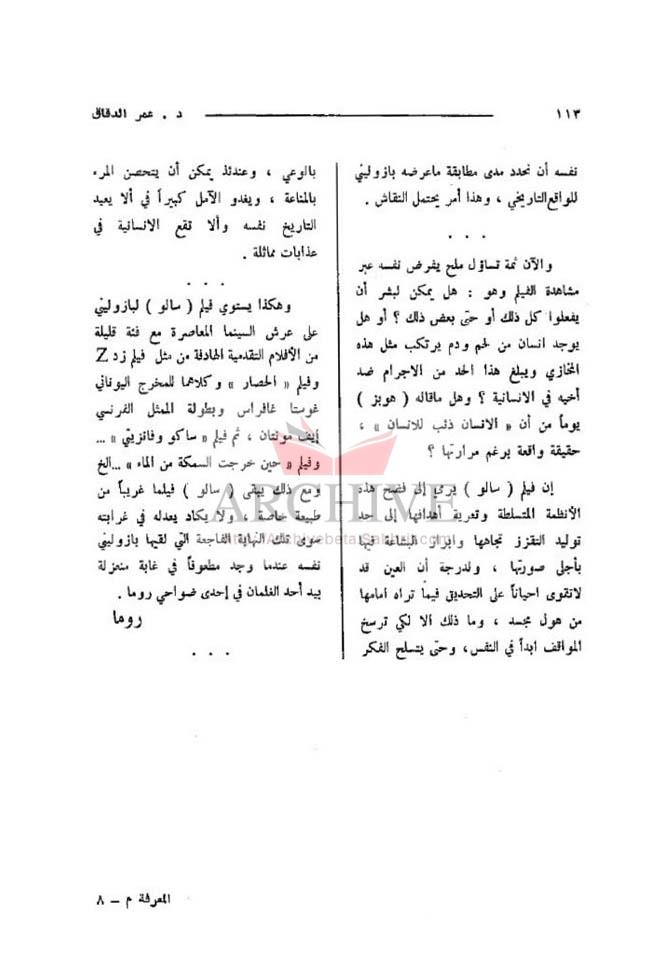 ١١٣ د . عمر الدقاق
نفسه أن نحدد مدى مطابقة ماعرضه بازوليني
للواقع التاريخي ، وهذا أمر يحتمل النقاش .
. . .
والآن ثمة تساؤل ملح يفرض نفسه عبر
مشاهدة الفيلم وهو : هل يمكن لبشر أن
يفعلوا كل ذلك أو حتى بعض ذلك ؟ أو هل
يوجد انسان من لحم ودم يرتكب مثل هذه
المخازي ويبلغ هذا الحد من الاجرام ضد
أخيه في الانسانية ؟ وهل ماقاله ( هوبز )
يوماً من أن « الانسان ذئب للانسان » ،
حقيقة واقعة برغم مرارتها ؟
إن فيلم ( سالو ) يرمي إلى فضح هذه
الأنظمة المتسلطة وتعرية أهدافها إلى حد
توليد التقزز تجاهها وابراز البشاعة فيها
بأجلى صورتها ، ولدرجة أن العين قد
لاتقوى احياناً على التحديق فيما تراه أمامها
من هول مجسد ، وما ذلك ألا لكي ترسخ
المواقف ابداً في النفس، وحتى يتسلح الفكر
بالوعي ، وعندئذ يمكن أن يتحصن المرء
بالمناعة ، ويغدو الأمل كبيراً في ألا يعيد
التاريخ نفسه وألا تقع الانسانية في
عذابات مماثلة .
. . .
وهكذا يستوي فيلم ( سالو ) لبازوليني
على عرش السينما المعاصرة مع فئة قليلة
من الأفلام التقدمية الهادفة من مثل فيلم زد Z
وفيلم « الحصار » وكلاهما للمخرج اليوناني
غوستا غافراس وبطولة الممثل الفرنسي
إيف مونتان ، ثم فيلم « ساكو وفانزيتي » ...
وفيلم « حين خرجت السمكة من الماء » ...الخ
ومع ذلك يبقى ( سالو ) فيلما غريباً من
طبيعة خاصة ، ولا يكاد يعدله في غرابته
سوى تلك النهاية الفاجعة التي لقيها بازوليني
نفسه عندما وجد مطعوناً في غابة منعزلة
بيد أحد الغلمان في إحدى ضواحي روما .
روما
. . .
ARCHIVE
المعرفة م – ٨